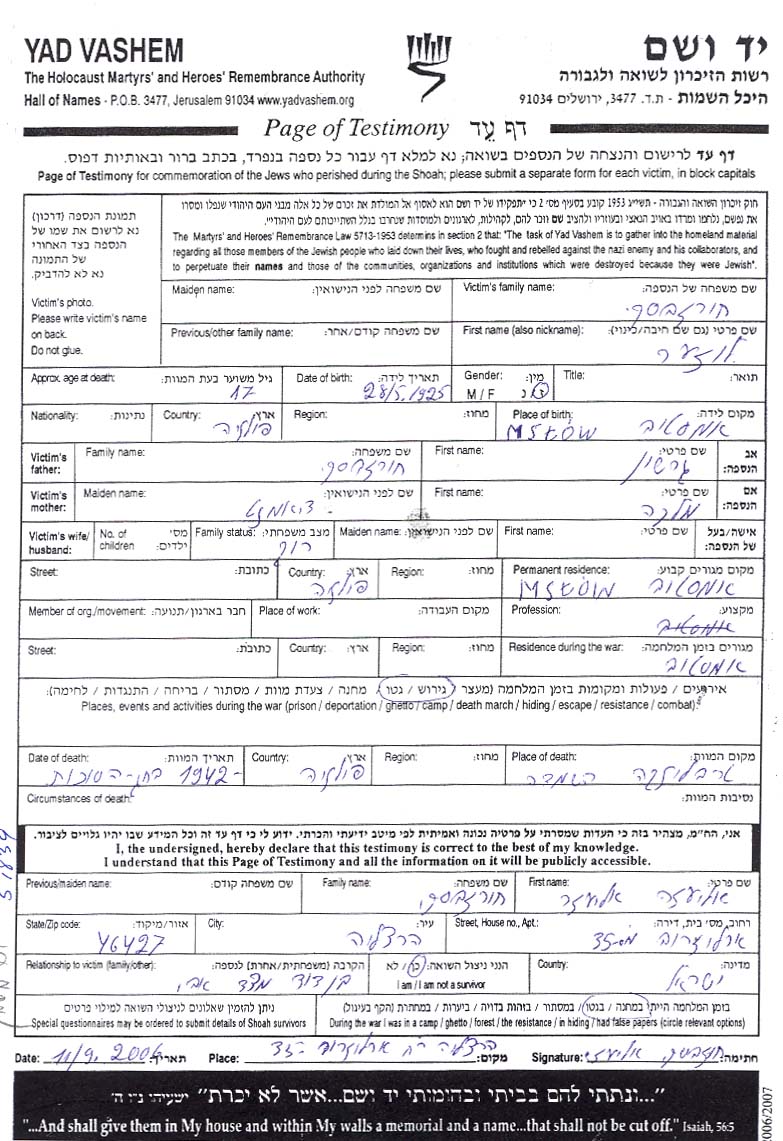 YAD VASHEM
The Holocaust Martyrs' and Heroes' Remembrance Authority
Hall of Names - P.O.B. 3477, Jerusalem 91034 www.yadvashem.org
יד ושם
רשות הזיכרון לשואה ולגבורה
היכל השמות - ת.ד. 3477, ירושלים 91034
Page of Testimony דף עֵד
דף עד לרישום והנצחה של הנספים בשואה; נא למלא דף עבור כל נספה בנפרד, בכתב ברור ובאותיות דפוס.
Page of Testimony for commemoration of the Jews who perished during the Shoah; please submit a separate form for each victim, in block capitals
תמונת הנספה (דרכון)
נא לרשום את שמו של
הנספה בצד האחורי
של התמונה
נא לא להדביק.
Victim's photo.
Please write victim's name
on back.
Do not glue.
חוק זיכרון השואה והגבורה - תשי"ג 1953 קובע בסעיף מס' 2 כי "תפקידו של יד ושם הוא לאסוף אל המולדת את זכרם של כל אלה מבני העם היהודי שנפלו ומסרו
את נפשם, נלחמו ומרדו באויב הנאצי ובעוזריו ולהציב שם וזכר להם, לקהילות, לארגונים ולמוסדות שנחרבו בגלל השתייכותם לעם היהודי".
The Martyrs' and Heroes' Remembrance Law 5713-1953 determins in section 2 that: "The task of Yad Vashem is to gather into the homeland material
regarding all those members of the Jewish people who laid down their lives, who fought and rebelled against the nazi enemy and his collaborators, and
to perpetuate their names and those of the communities, organizations and institutions which were destroyed because they were Jewish".
Maiden name: שם משפחה לפני הנישואין: Victim's family name: שם משפחה של הנספה:
Previous/other family name: שם משפחה קודם/אחר: First name (also nickname): שם פרטי (גם שם חיבה/כינוי):
Approx. age at death: גיל משוער בעת המוות: Date of birth: תאריך לידה: Gender: מין: Title: תואר:
17 28/5/1925 M / F ז / נ
Nationality: נתינות: Country: ארץ: Region: מחוז: Place of birth: מקום לידה:
פולניה MSTÓW אמסטוב
Victim's father: Family name: שם משפחה: First name: שם פרטי: אב הנספה:
גרשון
Victim's mother: Maiden name: שם לפני הנישואין: First name: שם פרטי: אם הנספה:
מלכה
Victim's wife/ husband: No. of children מס' ילדים: Family status: מצב משפחתי: Maiden name: שם לפני הנישואין: First name: שם פרטי: אישה/בעל של הנספה:
רווק
Street: כתובת: Country: ארץ: Region: מחוז: Permanent residence: מקום מגורים קבוע:
פולניה MSTÓW אמסטוב
Member of org./movement: חבר בארגון/תנועה: Place of work: מקום העבודה: Profession: מקצוע:
אמסטוב
Street: כתובת: Country: ארץ: Region: מחוז: Residence during the war: מגורים בזמן המלחמה:
אמסטוב
אירועים / פעולות ומקומות בזמן המלחמה (מעצר / גירוש / גטו / מחנה / צעדת מוות / מסתור / בריחה / התנגדות / לחימה):
Places, events and activities during the war (prison / deportation / ghetto / camp / death march / hiding / escape / resistance / combat):
Date of death: תאריך המוות: Country: ארץ: Region: מחוז: Place of death: מקום המוות:
1942 - בחג הסוכות פולניה טרבלינקה השמדה
Circumstances of death: נסיבות המוות:
אני, הח"מ, מצהיר בזה כי העדות שמסרתי על פרטיה נכונה ואמיתית לפי מיטב ידיעתי והכרתי. ידוע לי כי דף עד זה וכל המידע שבו יהיו גלויים לציבור.
I, the undersigned, hereby declare that this testimony is correct to the best of my knowledge.
I understand that this Page of Testimony and all the information on it will be publicly accessible.
Previous/maiden name: שם משפחה קודם: Family name: שם משפחה: First name: שם פרטי:
אליעזר
State/Zip code: אזור/מיקוד: City: עיר: Street, House no., Apt.: רחוב, מס' בית, דירה:
46427 הרצליה ארלוזרוב 35
Relationship to victim (family/other): הקרבה (משפחתית/אחרת) לנספה: הנני ניצול השואה: כן / לא Country: מדינה:
בן דוד מצד אבי I am / I am not a survivor ישראל
ניתן להזמין שאלונים לניצולי השואה למילוי פרטים
Special questionnaires may be ordered to submit details of Shoah survivors
בזמן המלחמה הייתי במחנה / בגטו / במסתור / בזהות בדויה / ביערות / במחתרת (הקף בעיגול)
During the war I was in a camp / ghetto / forest / the resistance / in hiding / had false papers (circle relevant options)
Date: 11/9/2006 תאריך: Place: הרצליה רח ארלוזרוב 35 מקום: Signature: חתימה:
"...ונתתי להם בביתי ובחומותי יד ושם...אשר לא יכרת" ישעיהו נ"ו ה'
"...And shall give them in My house and within My walls a memorial and a name...that shall not be cut off." Isaiah, 56:5